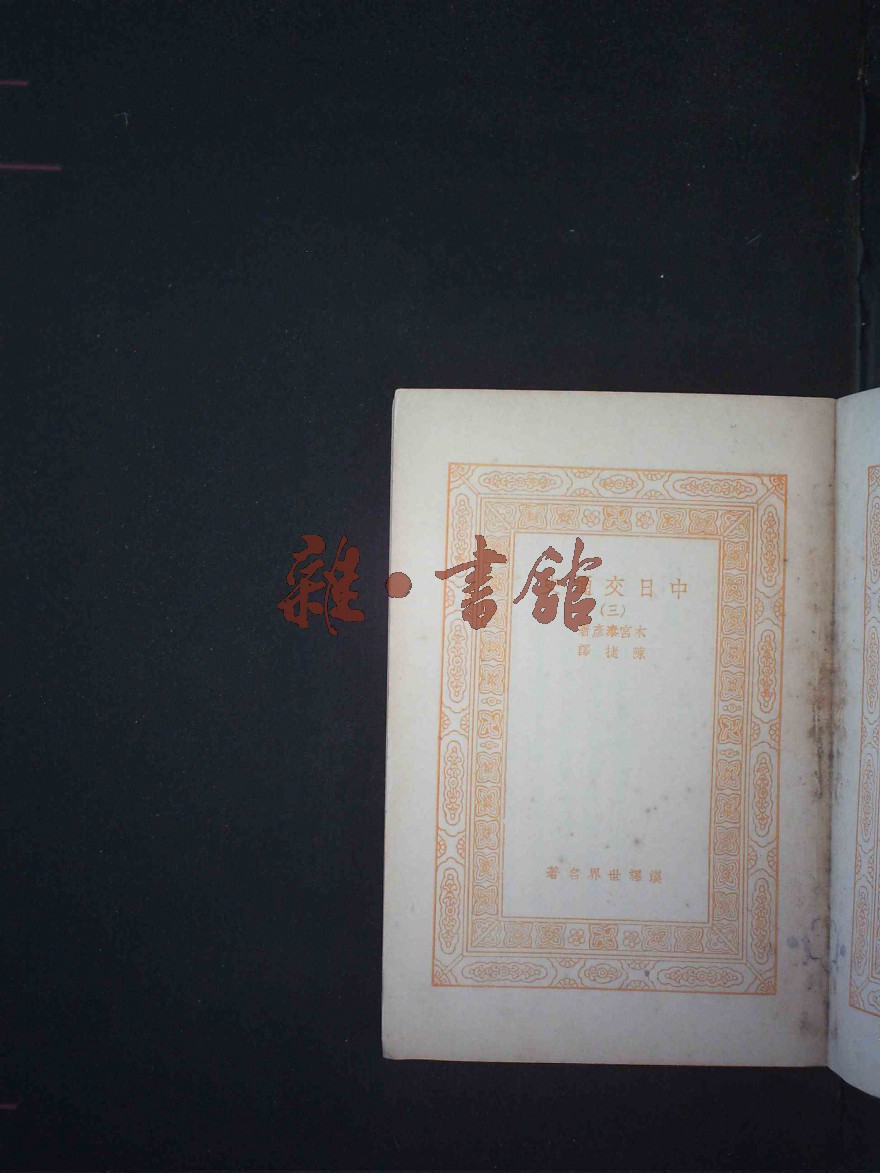 中日交通
(三)
木宮泰彥著
陳捷譯
漢譯世界名著
雜·書館